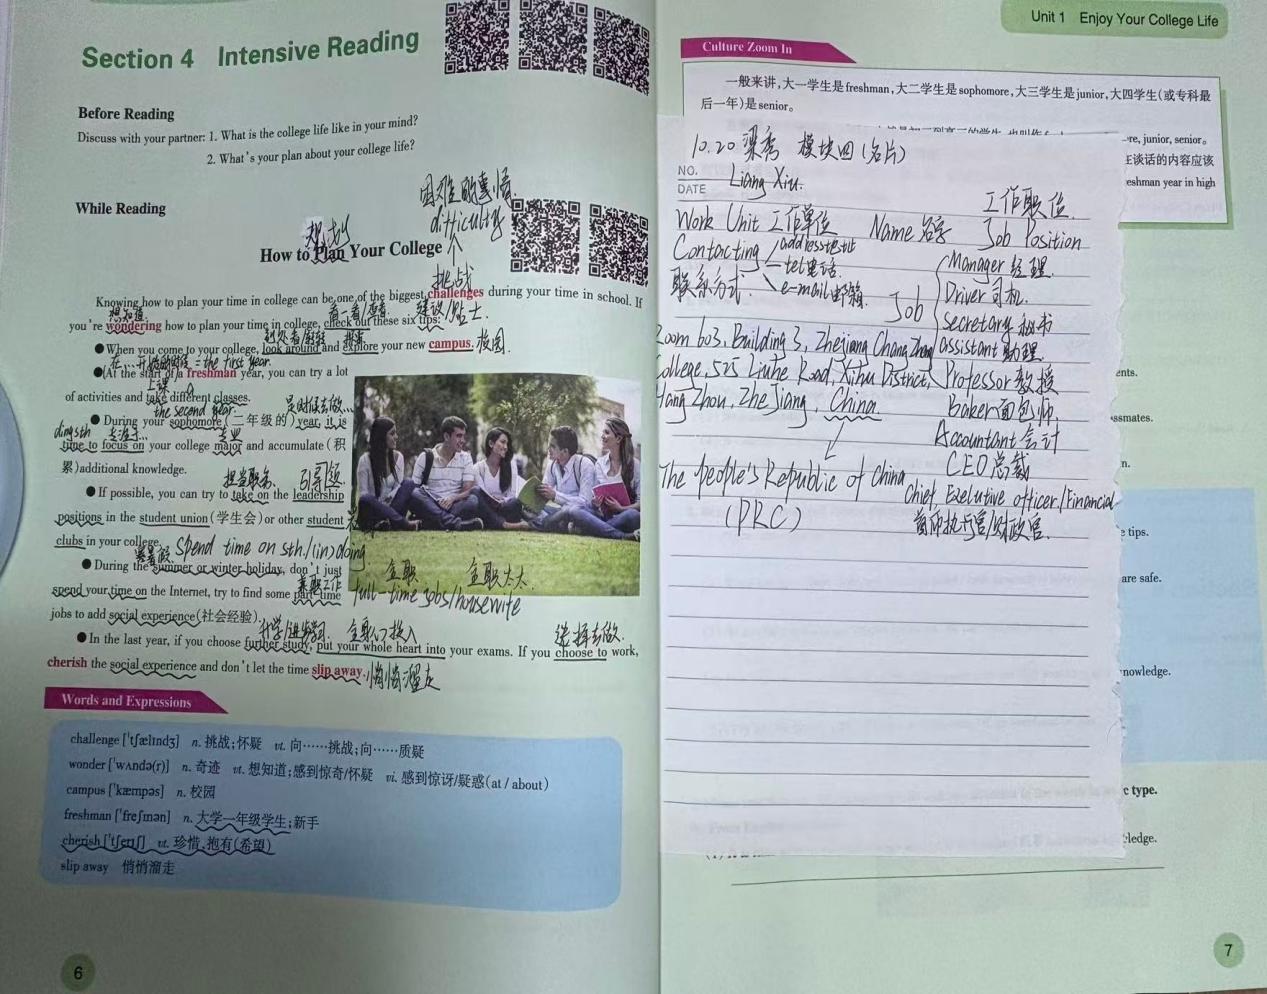 Section 4 Intensive Reading
Before Reading
Discuss with your partner: 1. What is the college life like in your mind?
2. What's your plan about your college life?
While Reading
困难的事情.
difficulty
规划
How to Plan Your College
挑战
Knowing how to plan your time in college can be one of the biggest challenges during your time in school. If
想知道 看一看/查看 建议/贴士
you're wondering how to plan your time in college, check out these six tips:
到处看/射转 探索
●When you come to your college, look around and explore your new campus. 校园
在...开始的时候 = the first year.
●(At the start of a freshman year, you can try a lot
上课
of activities and take different classes.
the second year. 是时候去做...
●During your sophomore (二年级的) year, it is
doing sth 专注于... 专业
time to focus on your college major and accumulate (积
累)additional knowledge.
担当职务 引导/领
●If possible, you can try to take on the leadership
positions in the student union(学生会)or other student
clubs in your college.
寒暑假 spend time on sth./(in)doing
●During the summer or winter holiday, don't just
兼职工作 全职 全职太太.
spend your time on the Internet, try to find some part-time
full-time jobs/housewife
jobs to add social experience(社会经验).
升学/进修学习 全职心投入 选择去做.
●In the last year, if you choose further study, put your whole heart into your exams. If you choose to work,
cherish the social experience and don't let the time slip away. 悄悄溜走
Words and Expressions
challenge ['tʃælɪndʒ] n. 挑战;怀疑 vt. 向……挑战;向……质疑
wonder ['wʌndə(r)] n. 奇迹 vt. 想知道;感到惊奇/怀疑 vi. 感到惊讶/疑惑(at / about)
campus ['kæmpəs] n. 校园
freshman ['freʃmən] n. 大学一年级学生;新手
cherish ['tʃerɪʃ] vt. 珍惜,抱有(希望)
slip away 悄悄溜走
6
Unit 1 Enjoy Your College Life
Culture Zoom In
一般来讲,大一学生是freshman,大二学生是sophomore,大三学生是junior,大四学生(或专科最
后一年)是senior。
re, junior, senior。
在谈话的内容应该
eshman year in high
10.20 梁秀 模块四(名片)
NO.
DATE Liang Xiu.
工作职位.
Work Unit 工作单位 Name 名字 Job Position
Contacting address地址
联系方式. tel电话.
e-mail邮箱.
Job
Manager 经理.
Driver 司机.
secretary 秘书
assistant 助理.
Professor 教授
Baker 面包师
Accountant 会计
CEO 总裁
Chief Exelutive officer/Financial
首席执行官/财政官.
Room 603, Building 3, Zhejiang Chang Zheng
College, 525 Liuhe Road, Xihu District,
Hang Zhou, Zhe Jiang, China.
The people's Republic of China
(PRC)
ents.
ssmates.
n.
e tips.
are safe.
nowledge.
c type.
ledge.
7